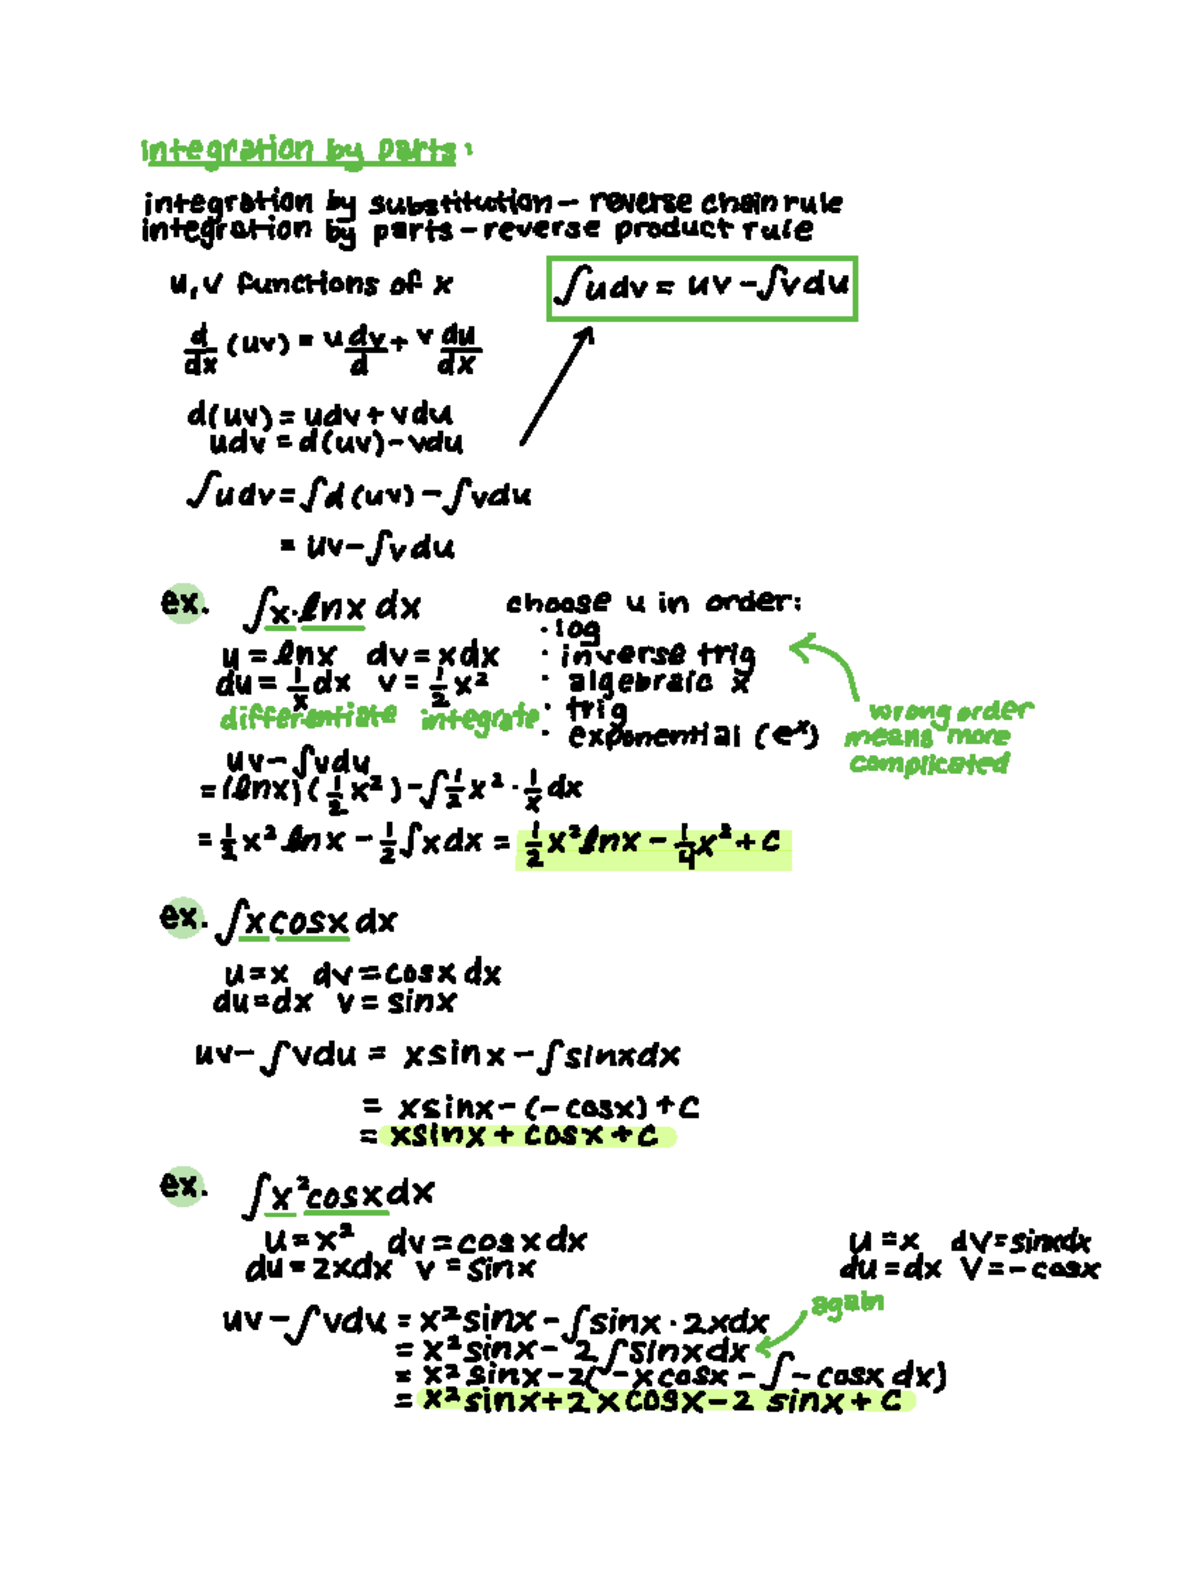 integration by parts:
integration by substitution – reverse chain rule
integration by parts – reverse product rule
u, v functions of x
∫udv = uv – ∫vdu
d/dx (uv) = u dv/d + v du/dx
d(uv) = udv + vdu
udv = d(uv) – vdu
∫udv = ∫d(uv) – ∫vdu
= uv – ∫vdu
ex. ∫x·lnx dx
u = lnx dv = xdx
du = 1/x dx v = 1/2 x²
differentiate integrate
choose u in order:
· log
· inverse trig
· algebraic x
· trig
· exponential (eˣ)
wrong order
means more
complicated
uv – ∫vdu
= (lnx)(1/2 x²) – ∫1/2 x² · 1/x dx
= 1/2 x² lnx – 1/2 ∫xdx = 1/2 x² lnx – 1/4 x² + c
ex. ∫x cosx dx
u = x dv = cosx dx
du = dx v = sinx
uv – ∫vdu = xsinx – ∫sinxdx
= xsinx – (–cosx) + C
= xsinx + cosx + C
ex. ∫x²cosxdx
u = x² dv = cosx dx
du = 2xdx v = sinx
u = x dv = sinxdx
du = dx v = –cosx
again
uv – ∫vdu = x²sinx – ∫sinx · 2xdx
= x²sinx – 2∫sinxdx
= x²sinx – 2(–xcosx – ∫–cosx dx)
= x²sinx + 2xcosx – 2 sinx + C